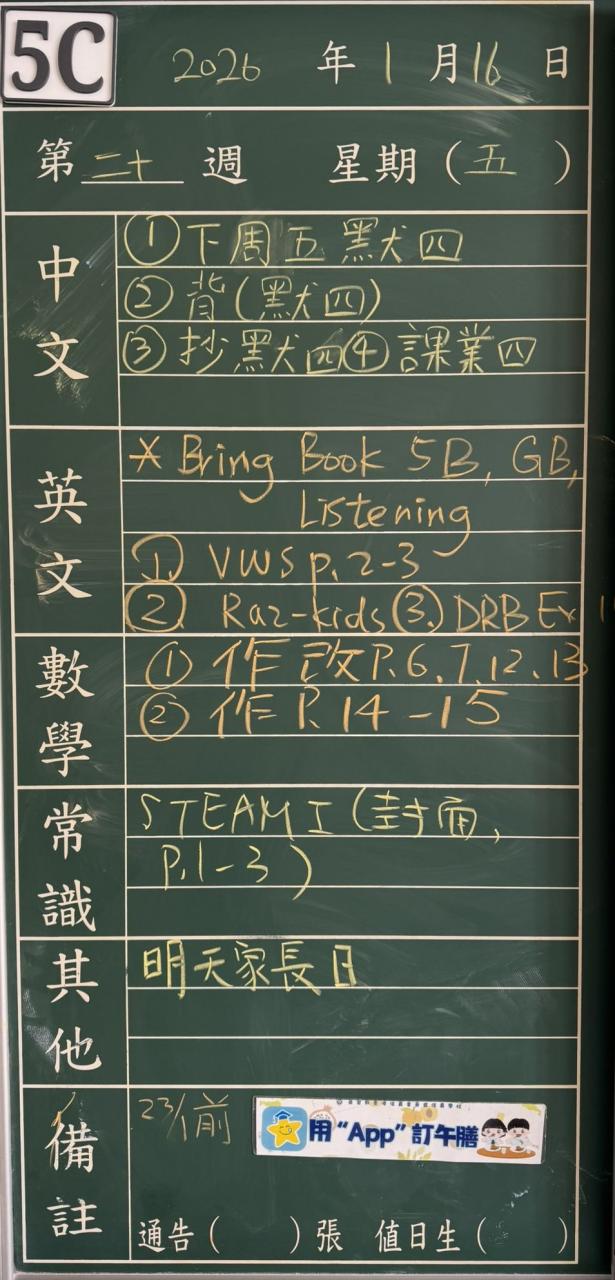 5C
2026 年 1 月 16 日
第 二十 週 星期(五)
中文
①下周五默四
②背(默四)
③抄默四④課業四
英文
* Bring Book 5B, GB,
Listening
①. VWS p. 2-3
②. Raz-kids ③. DRB Ex 1
數學
① 作改P.6,7,12,13
② 作P.14-15
常識
STEAM I (封面,
P.1-3)
其他
明天家長日
備註
23/1前
用“App”訂午膳
通告( )張 值日生( )